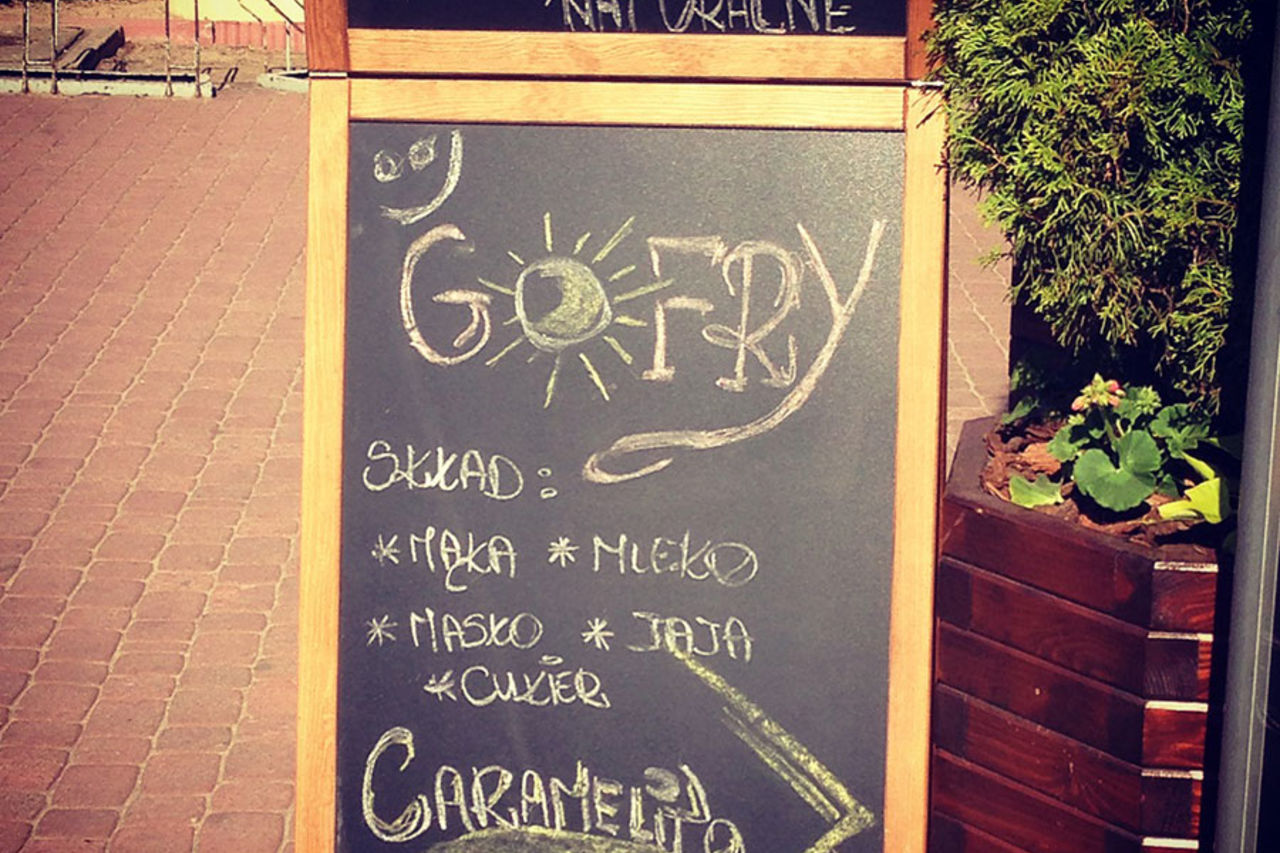 NATURALNE
GOFRY
SKŁAD:
*MĄKA *MLEKO
*MASŁO *JAJA
*CUKIER
CARAMELITO